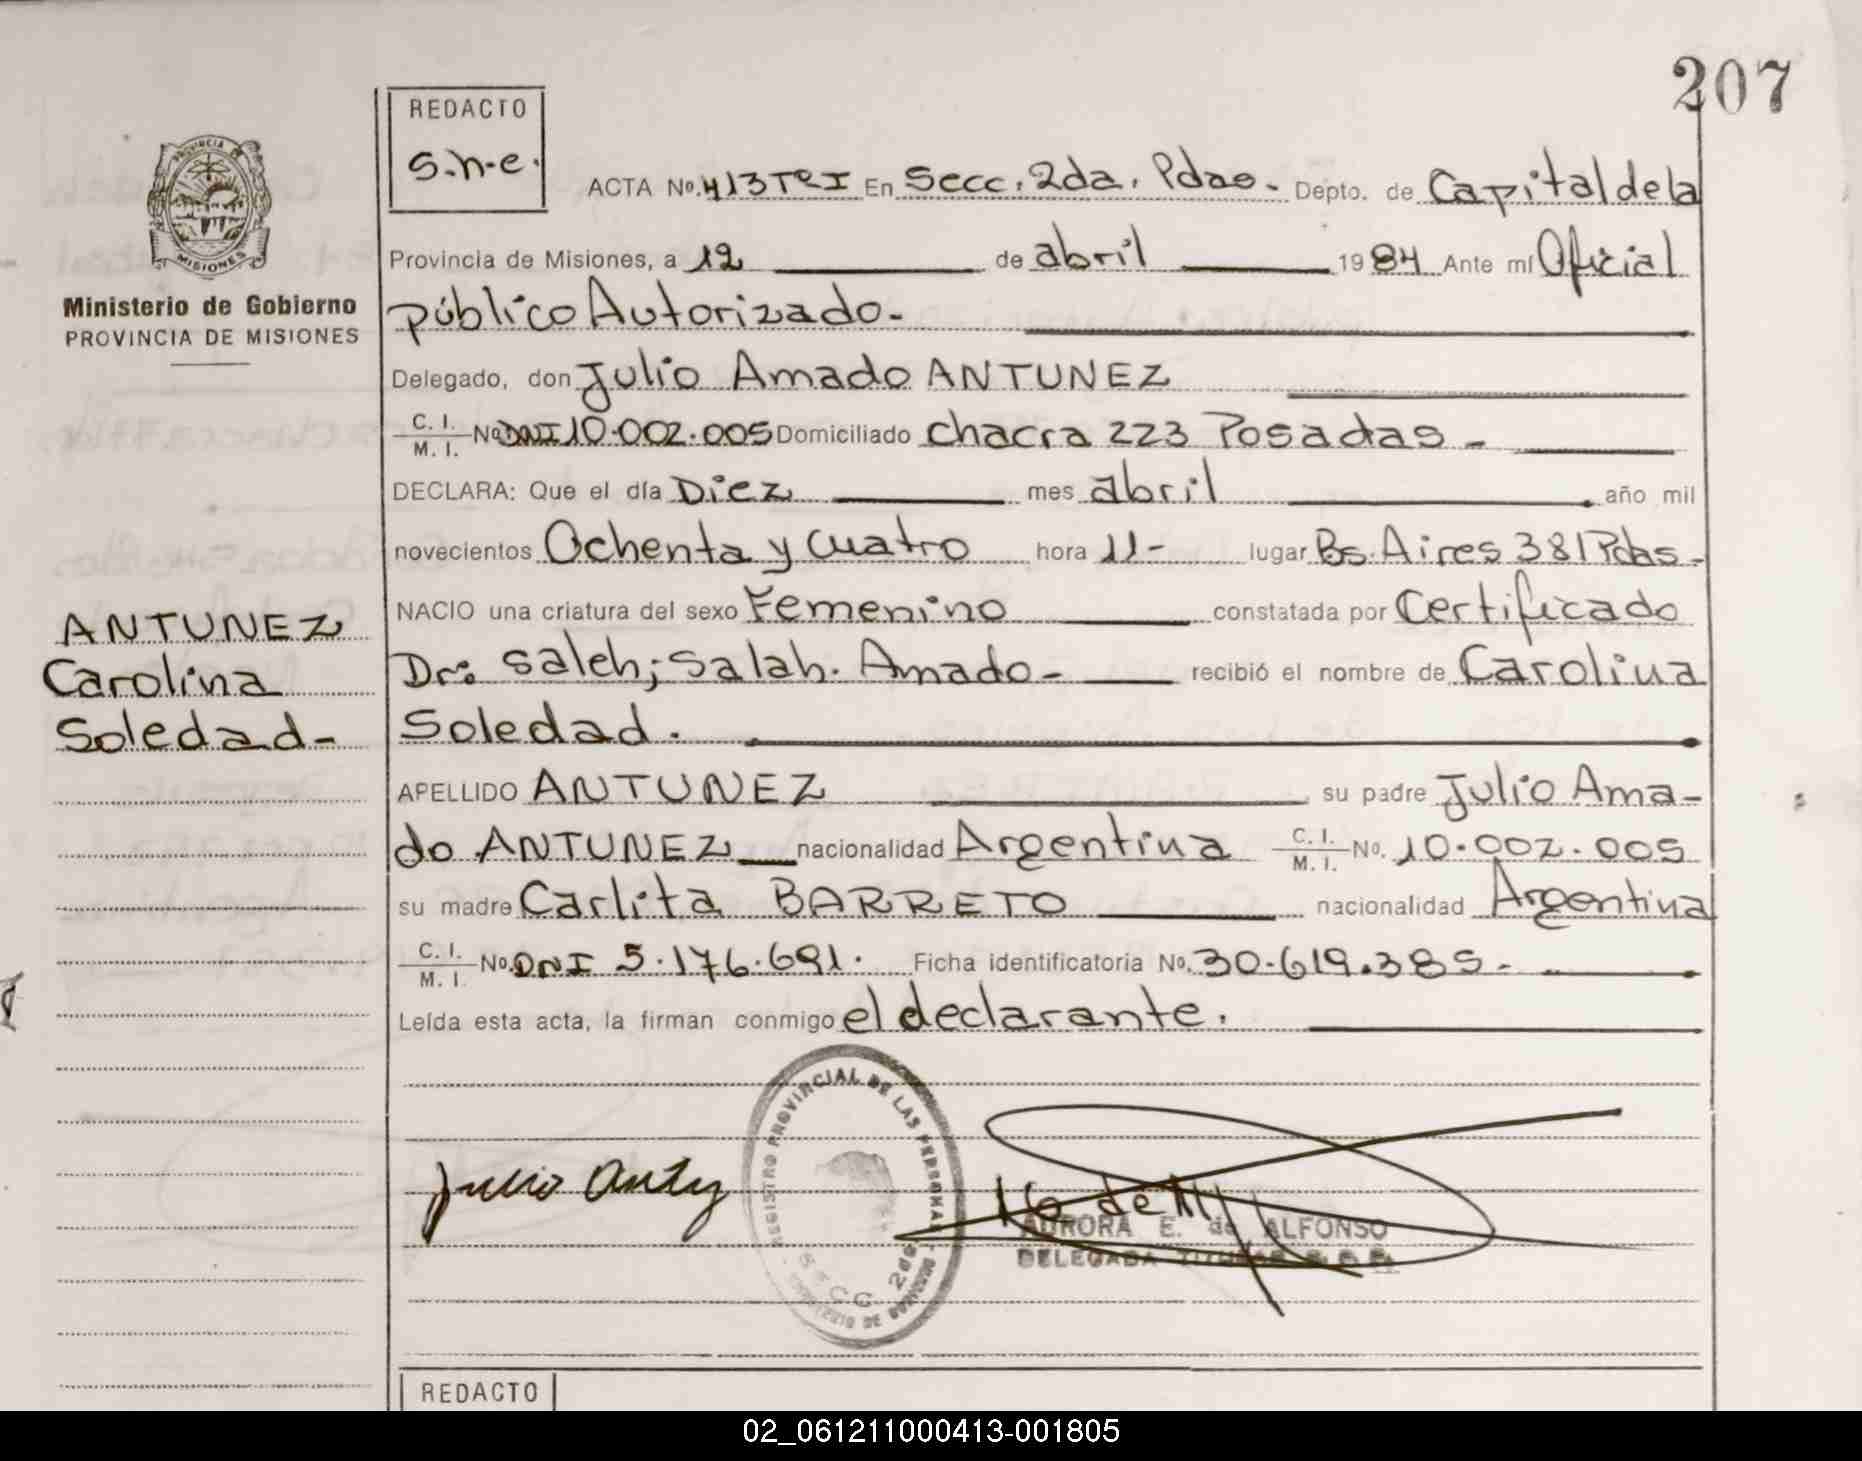 207
REDACTO
S.n-e.
ACTA No. 413 To I En Secc. 2da. Pdas. Depto. de Capital de la
PROVINCIA DE
MISIONES
Ministerio de Gobierno
PROVINCIA DE MISIONES
Provincia de Misiones, a 12 de abril 1984 Ante mí Oficial
público Autorizado.
Delegado, don Julio Amado ANTUNEZ
C. I. M. I. No. DNI 10.002.005 Domiciliado chacra 223 Posadas -
DECLARA: Que el día Diez mes abril año mil
novecientos Ochenta y cuatro hora 11- lugar Bs. Aires 381 Pdas-
NACIO una criatura del sexo Femenino constatada por Certificado
Dr: Saleh; Salah. Amado- recibió el nombre de Carolina
Soledad.
ANTUNEZ
Carolina
Soledad-
APELLIDO ANTUNEZ su padre Julio Ama-
do ANTUNEZ nacionalidad Argentina C. I. M. I. No. 10.002.005
su madre Carlita BARRETO nacionalidad Argentina
C. I. M. I. No. DNI 5.176.691. Ficha identificatoria No. 30.619.385.-
Leída esta acta, la firman conmigo el declarante.
REGISTRO PROVINCIAL DE LAS PERSONAS
SECC 2da
MINISTERIO DE GOBIERNO
Julio
AURORA E. de ALFONSO
DELEGADA TITULAR
REDACTO
02_061211000413-001805